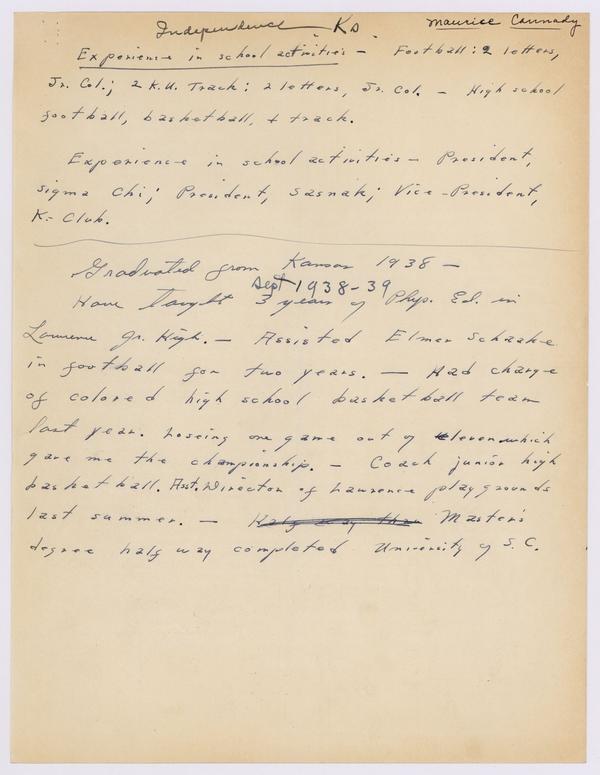 Independence Ks.
Maurice Cannady
Experience in school activities – Football: 2 letters,
Jr. Col.; 2 K.U. Track: 2 letters, Jr. Col. – High school
football, basketball, + track.
Experience in school activities – President,
Sigma Chi; President, Sasnak; Vice-President,
K-Club.
Graduated from Kansas 1938 –
Sept 1938-39
Have taught 3 years of Phys. Ed. in
Lawrence Jr. High. – Assisted Elmer Schaake
in football for two years. – Had charge
of colored high school basketball team
last year. Loseing one game out of eleven which
gave me the championship. – Coach junior high
basketball. Asst. Director of Lawrence playgrounds
last summer. – Half way thru Master's
degree half way completed University of S. C.